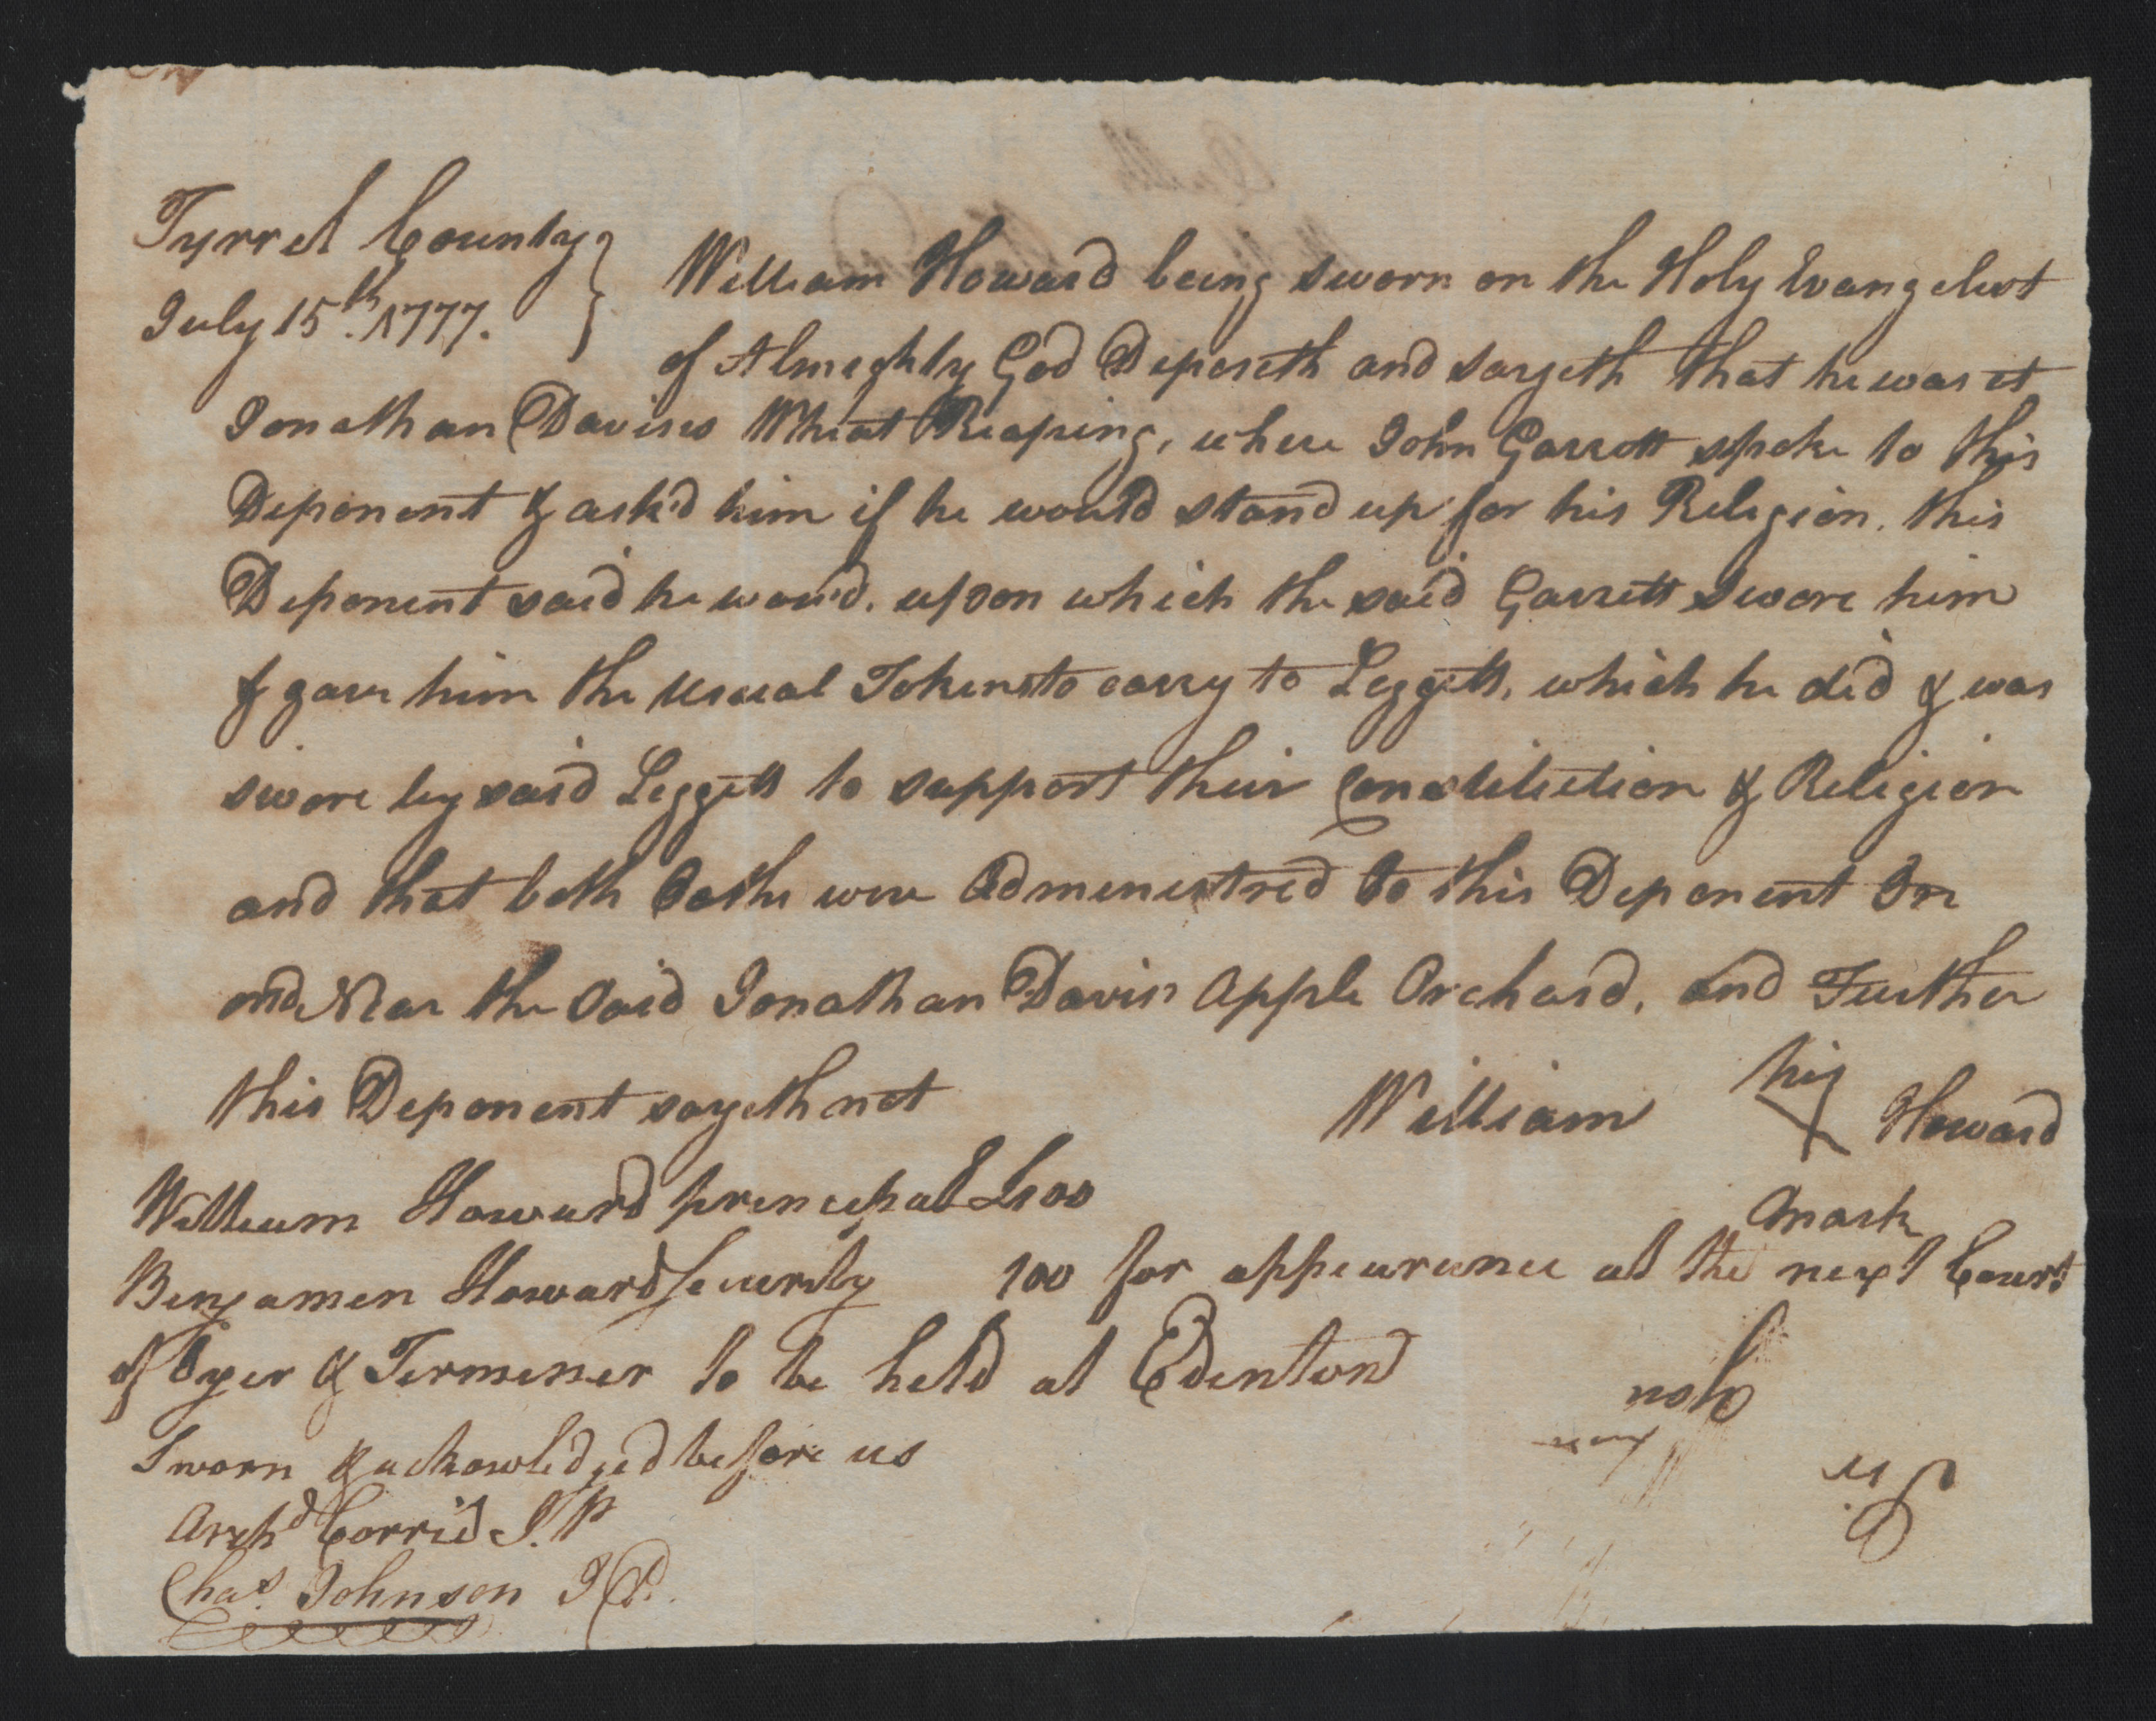 Tyrrel County
July 15th. 1777.
William Howard being sworn on the Holy Evangelist
of Almighty God Deposeth and sayeth that he was at
Jonathan Davises Wheat Reaping, where John Garrett spoke to this
Deponent & ask'd him if he would stand up for his Religion. this
Deponent said he wou'd. upon which the said Garrett swore him
& gave him the usual Tokens to carry to Leggett, which he did & was
swore by said Leggett to support their Constitution & Religion
and that both Oaths were Administred to this Deponent In
and Near the said Jonathan Davis Apple Orchard, and Further
this Deponent sayeth not
William his X Howard
mark
William Howard principal £100
Benjamen Howard Security 100 for appearance at the next Court
of Oyer & Terminer to be held at Edenton
Sworn & acknowledged before us
Archd Corrie J.P
Chas. Johnson J P.